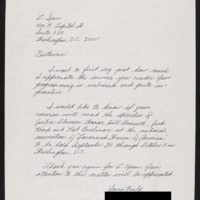 C-Span
400 N. Capitol St.
Suite 650
Washington, D.C. 20001
Gentlemen:
I want to first say just how much
I appreciate the service you render. Your
programming is and quite in-
formative.
I would like to know if your
cameras will record the speeches of
Justice Clarence Thomas, Bill Bennett, Jack
Kemp and Pat Buchanan at the national
convention of Concerned Women of America
to be held September 30 through October 3 in
Washington, D.C.
Thank you again for C-Span. Your
attention to this matter will be appreciated.